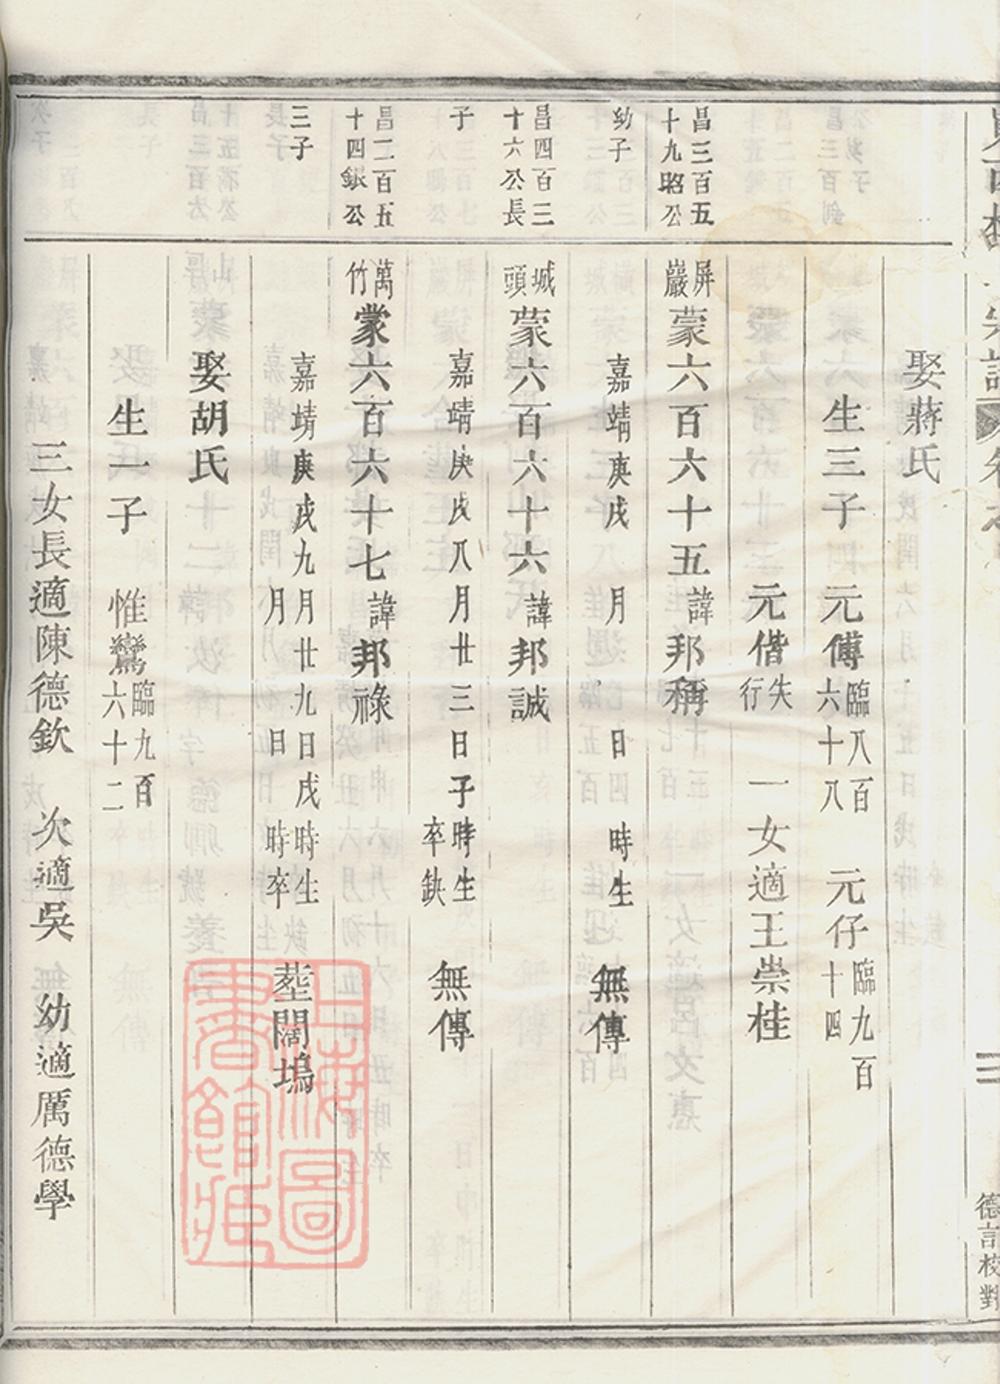 娶蔣氏
生三子 元傅臨八百六十八 元仔臨九百十四
元偕失行 一女適王崇桂
昌三百五十九昭公幼子
屏巖蒙六百六十五諱邦稱
嘉靖庚戌 月 日 時生 無傳
昌四百三十六公長子
城頭蒙六百六十六諱邦誠
嘉靖庚戌八月廿三日子時生卒缺 無傳
昌二百五十四銀公三子
萬竹蒙六百六十七諱邦祿
嘉靖庚戌九月廿九日戌時生 月 日 時卒 塟闊塢
娶胡氏
生一子 惟鸞臨九百六十二
三女長適陳德欽 次適吳 幼適厲德學
德言校對
上海圖書館藏